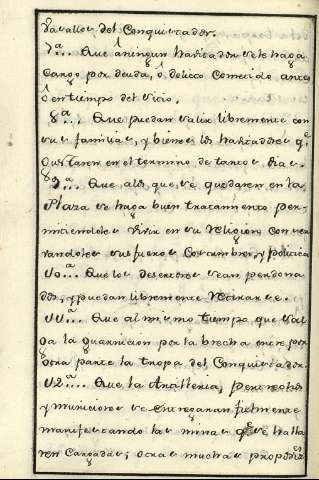 vasallos del Conquistador.
7ª... Que âningun havitador se le haga
Cargo por deuda, ô delicto Cometido antes
ô en tiempo del sitio.
8ª... Que puedan salir libremente con
sus familias, y bienes los havitadores qe
gustaren en el termino de tantos dias.
9ª... Que a los que se quedaren en la
Plaza se haga buen tratamiento per-
mitiendoles vivir en su religion, conser-
vandoles sus fueros Costumbres, y policia
10ª... Que los desertores sean perdona-
dos, y puedan libremente retirarse.
11ª... Que al mismo tiempo que sal-
ga la guarnicion por la brecha entre por
otra parte la tropa del Conquistador.
12ª... Que la Artilleria, pertrechos
y municiones se entregaran fielmente
manifestando las minas qe se halla-
ren Cargadas; otras muchas propos